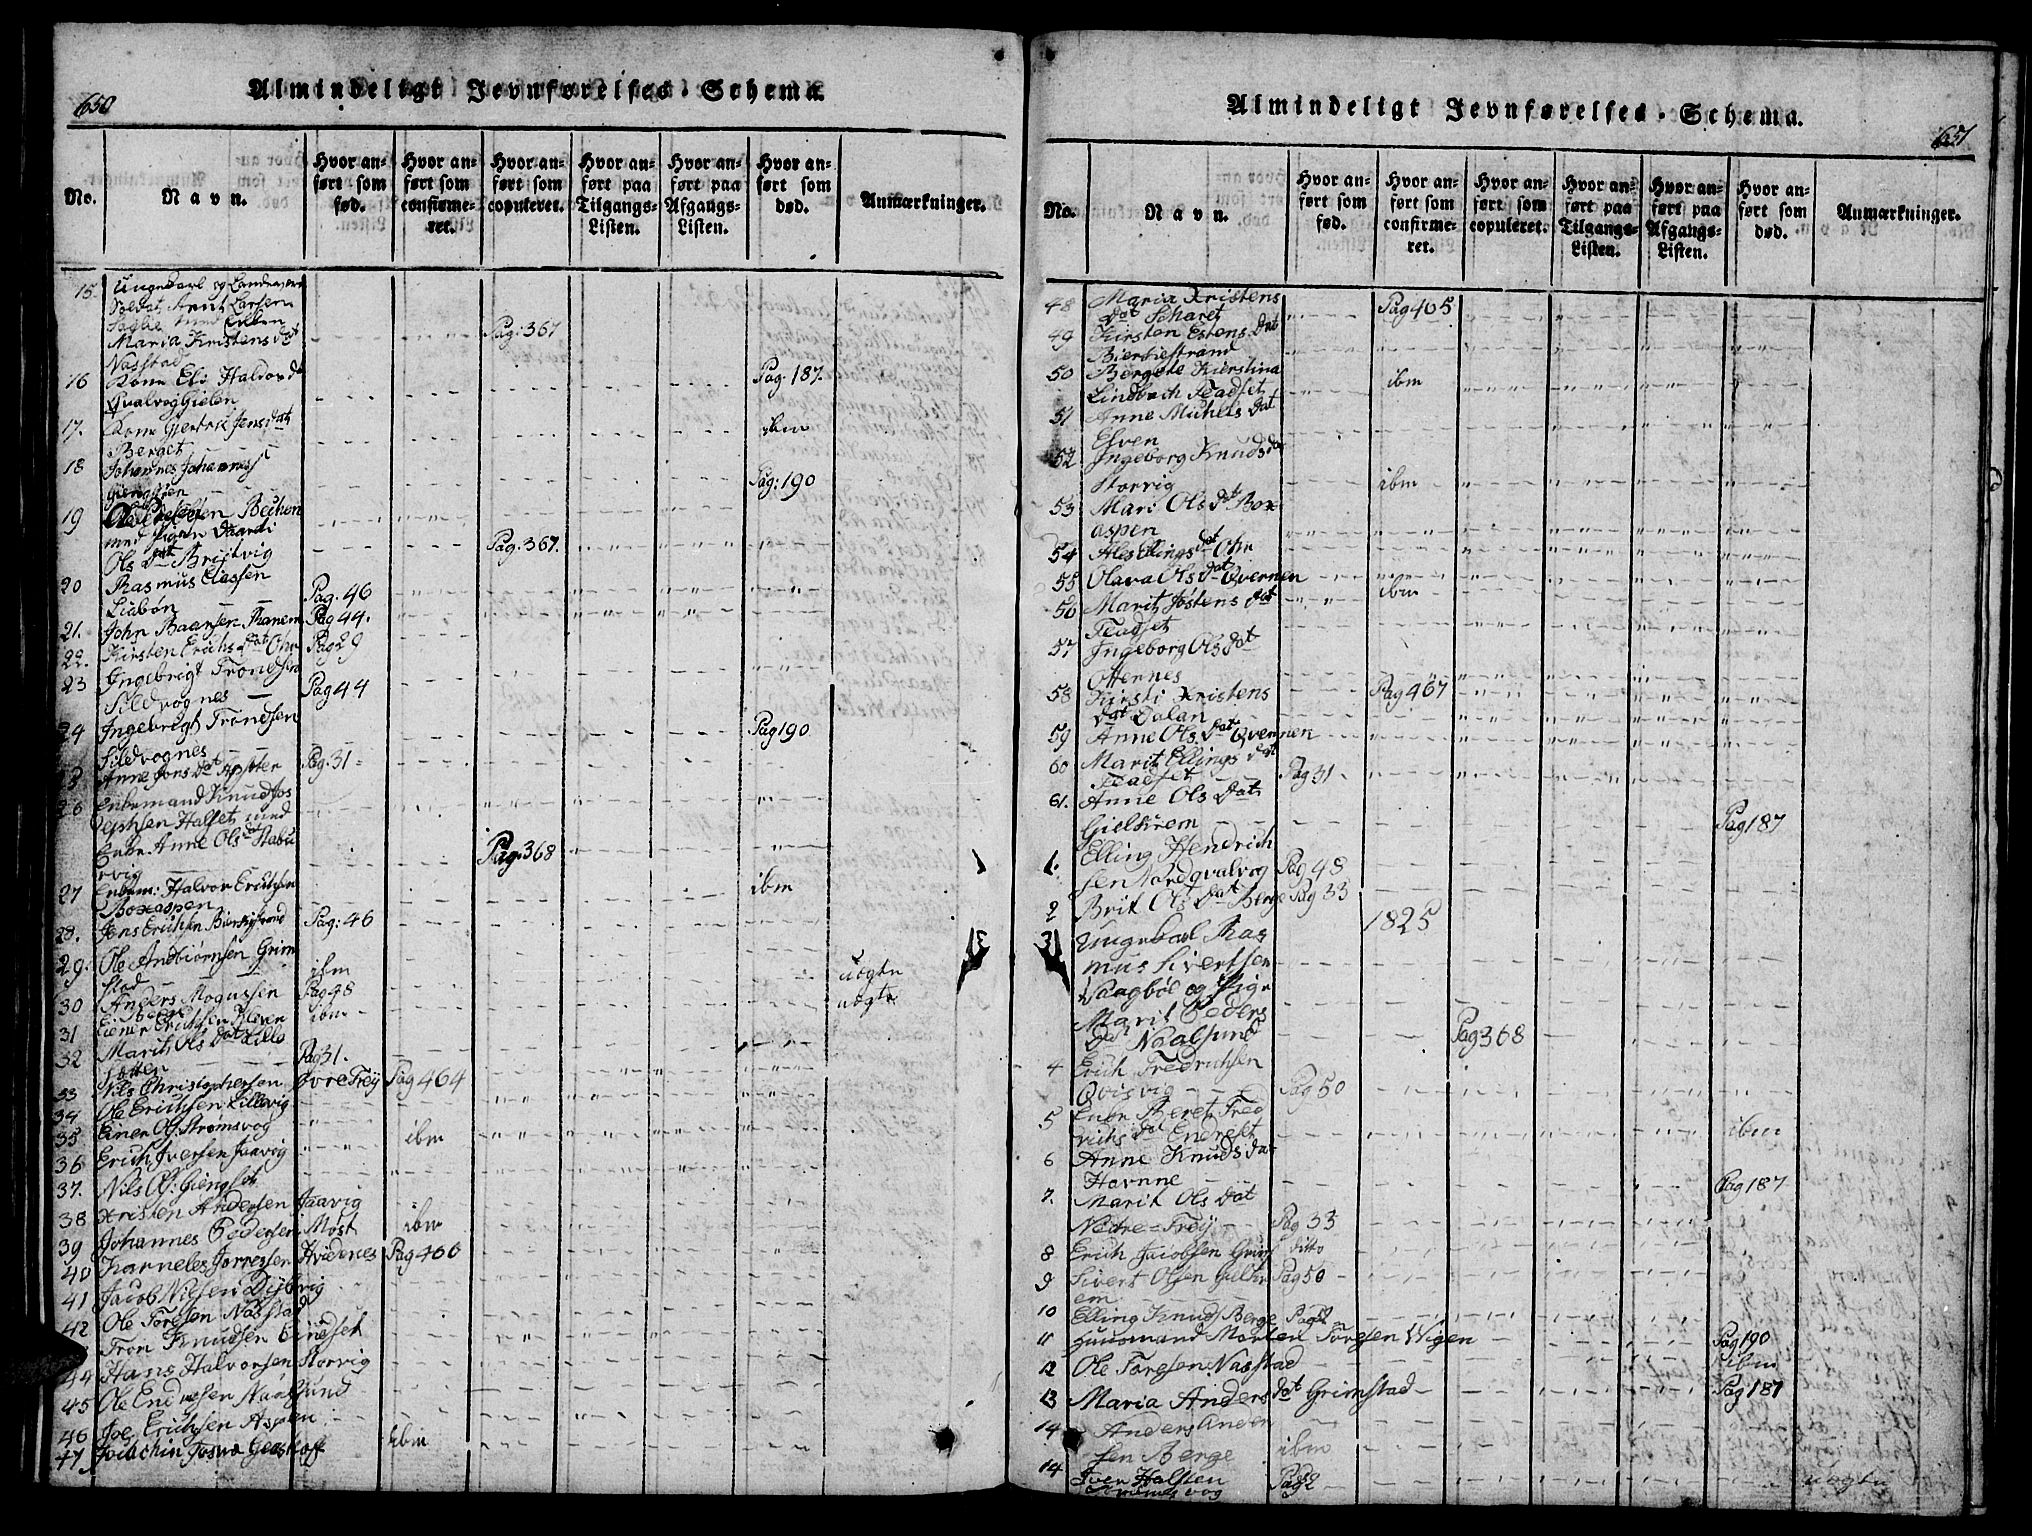 650
Almindeligt Jevnførelses-Schema.
No.
Navn.
Hvor anført som fød.
Hvor anført som confirmeret.
Hvor anført som copuleret.
Hvor anført paa Tilgangs-Listen.
Hvor anført paa Afgangs-Listen.
Hvor anført som død.
Anmærkninger.
15. Ungekarl og Landeværn
Soldat Arnt Larsen
Maria Kristens dat Pag: 367
Nasstad
16 Kone Eli Halvors d Pag. 187.
Qvalvog Gielen
17. Kone Giertrù Jens dat ibm
Berget
18 Johannes Johannes Pag: 190
19 Bechen
med Pigen
Ols dat Britvig Pag: 367.
20 Rasmus Eliassen
Liabøn Pag. 46
21. John Baarsen Ranem Pag 44.
22. Kirsten Erichs dat Ohr Pag 29
23 Ingebrigt Tronsen
Sildvognes Pag 44
24 Ingebrigt Trondsen Pag 190
Sildvognes
25 Anne Jons dat Pag. 31
26 Enkemand Knud Jos
ephsen Halset med
Enke Anne Ols dat Stabl
rvig Pag. 368
27 Enkem: Halvor Erichsen ibm
Boxaspen
28. Jens Erichsen Bierkestrand Pag: 46
29. Ole Andbiørnsen Grim
stad ibm uægte
30 Anders Mogussen Pag 48 uægte
Berge
31 Einer Erichsen ibm
32 Marit Ols dat Lille
Pag 31.
33 Nils Christophersen Øvre Frey Pag 464
34 Ole Erichsen Lillevig
35 Einer Ols: Strømsvog ibm
36 Erich Iversen Jaavig
37. Nils Ols: Giengstøe
38 Kristen Andersen Jaavig
39 Johannes Pedersen Most ibm
40 Karneles Jørressen Hvidenes Pag 466
41 Jacob Nilsen Dybvig
42 Ole Toresen Nasstad
Tron Knudsen Endset
44 Hans Halvorsen Storvig
45 Ole Endresen Naalsund
46 Joe Erichsen Aspen
47 Joiachin Josva Geelhoff ibm
651
Almindeligt Jevnførelses-Schema.
No.
Navn.
Hvor anført som fød.
Hvor anført som confirmeret.
Hvor anført som copuleret.
Hvor anført paa Tilgangs-Listen.
Hvor anført paa Afgangs-Listen.
Hvor anført som død.
Anmærkninger.
48 Maria Kristens Pag 465
dat Scharet
49 Kirsten Estens dat
Bierkestrand
50 Bergete Kierstina ibm
Lindbach Fladset
51 Anne Michels dat
Elven
52 Ingeborg Knuds dat
Storvig ibm
53 Mari Ols dat Box
aspen
54 Ales Elings dat Ohr
55 Olava Ols dat Qvernen
56 Marit Jostens dat ibm
Fladset
57 Ingeborg Ols dat
Otternes
58 Kirsti Kristens Pag 467
dat Dalan
59 Anne Ols dat Qvernen
60 Marit Ellings dat
Fladset Pag 31
61. Anne Ols dat
Gielskrem Pag 187
1. Elling Hendrich
sen Nordqvalvog Pag 48
2 Brit Ols dat Berge Pag 33
1825
3 Ungekarl Ras
mus Sivertsen
Vaagbøe og Pige
Marit Peders
dat Naalsund Pag 368
4 Erich Fredrichsen
Qvisvig Pag 50
5 Enke Beret Fred
richs dat Endreset ibm
6 Anne Knuds dat
Havnne Pag 187
7. Marit Ols dat
Nedre-Frey Pag 33
8 Erich Jacobsen Grims ditto
9 Sivert Olsen Gielskr Pag 50
em
10 Elling Knuds Berge Pag 52
11 Huusmand Morten Toresen Wigen Pag 190
12 Ole Toresen Nasstad ibm
13 Maria Anders dat Grimstad Pag 187
14 Anders Ander
sen Berge ibm
14 Iver Halsten Pag 52 uægte